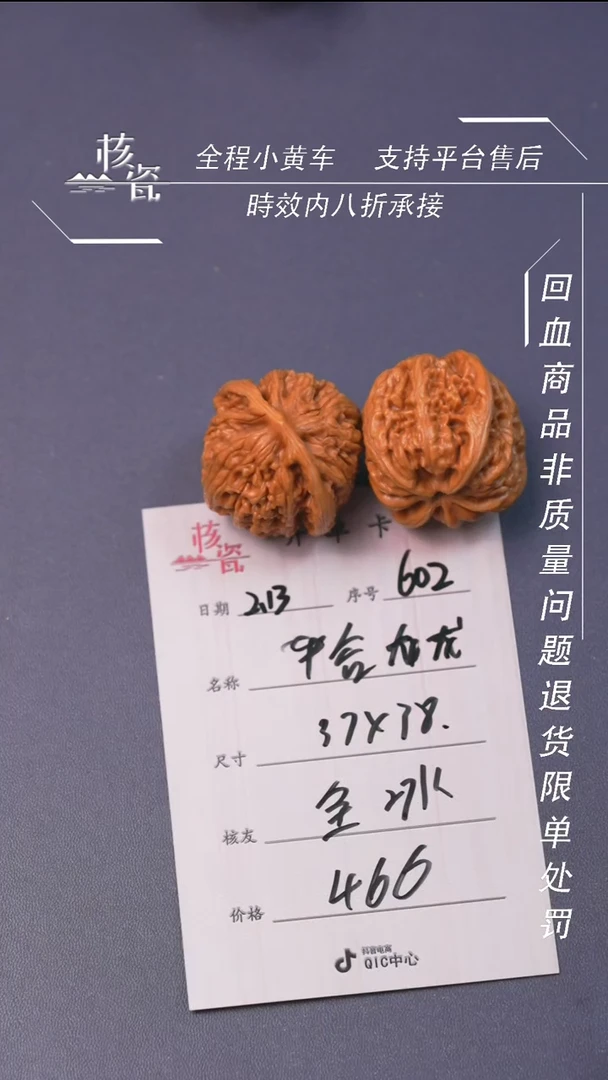 核瓷
全程小黄车 支持平台售后
時效内八折承接
回血商品非质量问题退货限单处罚
核瓷
卡
日期 2.13 序号 602
名称
尺寸 37X38.
核友
价格 466
抖音电商
QIC中心